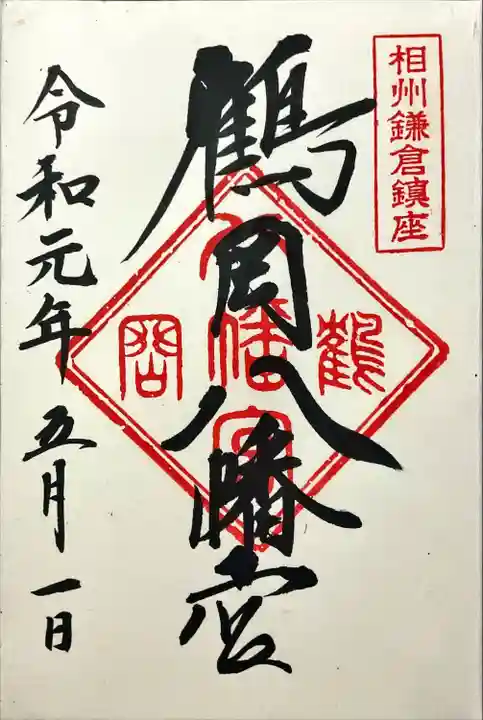 相州鎌倉鎮座
鶴岡八幡宮
鶴岡八幡宮
令和元年五月一日